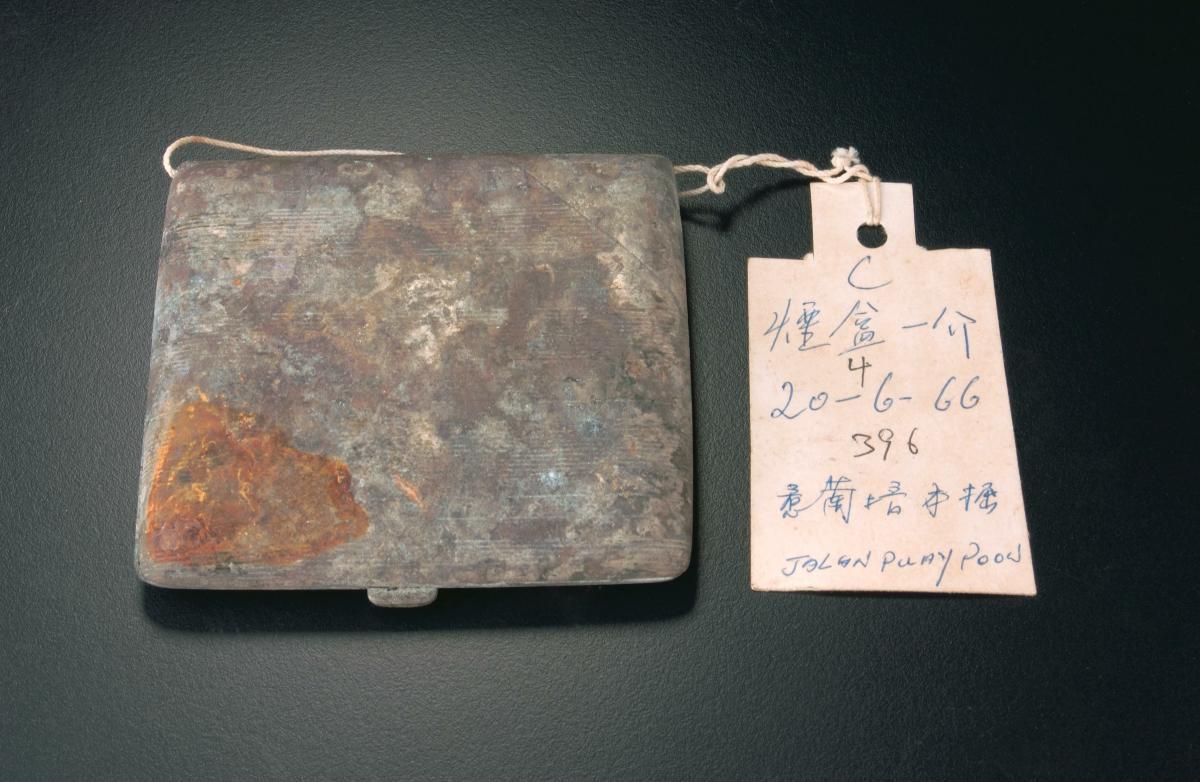 C
煙盒一介
4
20-6-66
396
惹蘭培本掘
JALAN PUAY POON